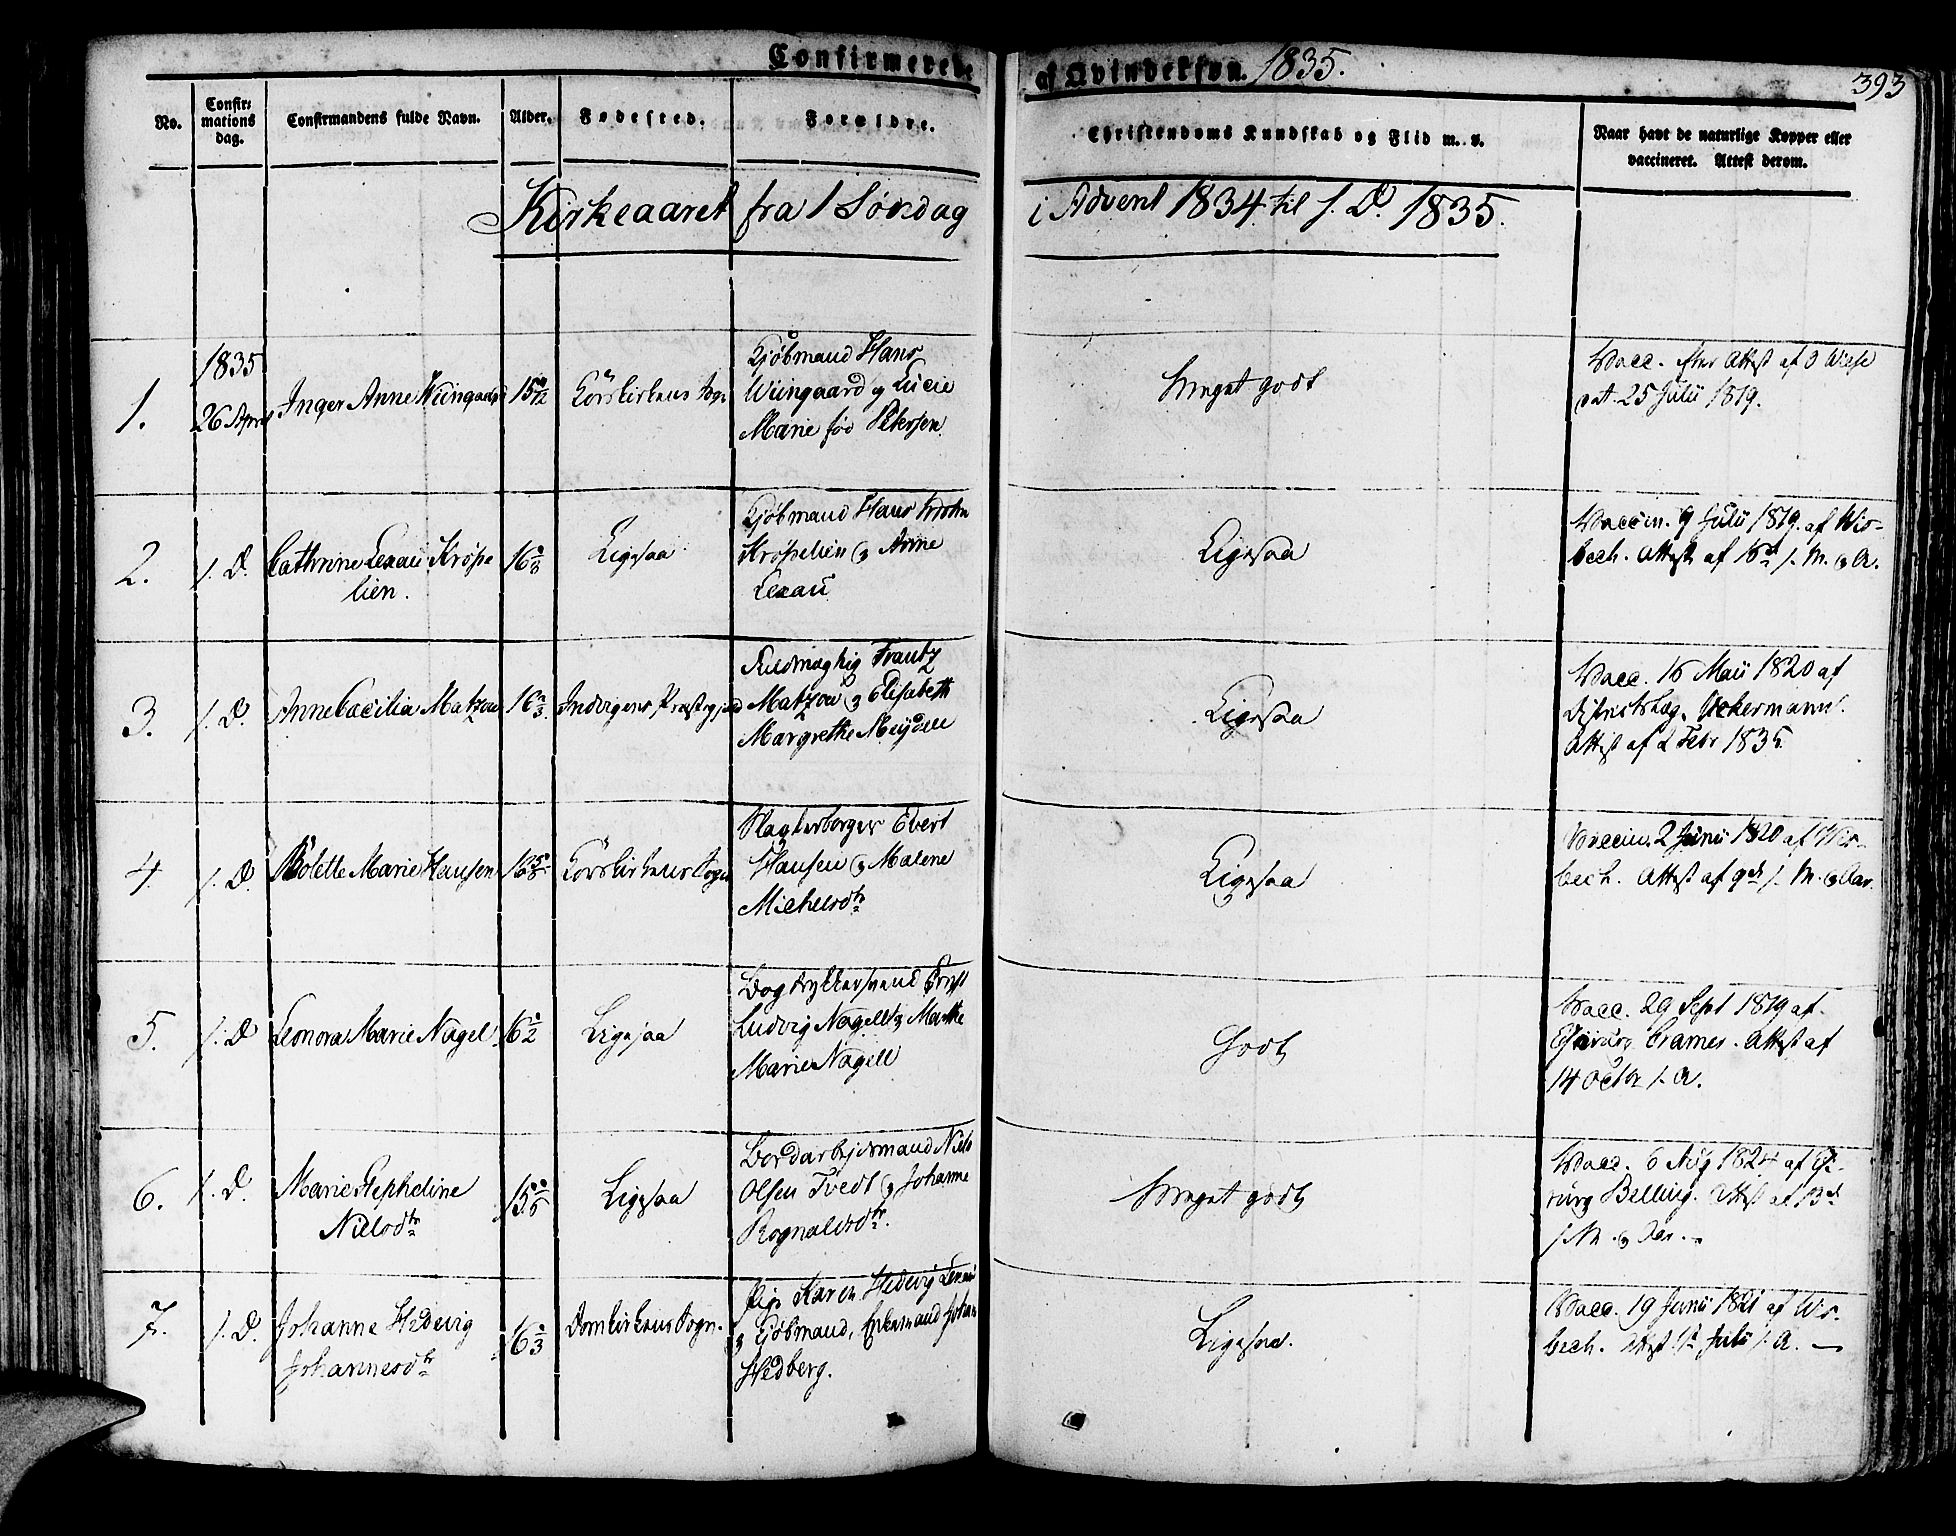 Confirmerede af Qvindekjøn. 1835.
393
No.
Confir-
mations
dag.
Confirmandens fulde Navn.
Alder.
Fødested.
Forældre.
Christendoms Kundskab og Flid m. v.
Naar havt de naturlige Kopper eller
vaccineret. Attest derom.
Kirkeaaret fra 1 Søndag i Advent 1834 til s. D. 1835.
1.
1835
26 April
Inger Anne Wiingaard
15
Korskirkens Sogn
Kjøbmand Hans
Wiingaard og Lucie
Marie fød Petersen
Meget godt
Vacc. efter Attest af
dat. 25 Julii 1819.
2.
s. D.
Cathrine Lexau Krøpe
lien.
16
Ligesaa
Kjøbmand Hans Krohn
Krøpelien og Anne
Lexau
Ligesaa
Vaccin. 9 Julii 1819. af Wis-
bech. Attest af 16de s. M. og A.
3.
s. D.
Anne Cæcilia Matzow
16
Indvigens Præstegjeld
Fuldmægtig Frantz
Matzow og Elisabeth
Margrethe Meydell
Ligesaa
Vacc. 16 Maii 1820 af
Districtslæg. Uckermann.
Attest af 2 Febr 1835
4.
s. D.
Bolette Marie Hansen
16
Korskirkens Sogn
Slagterborger Evert
Hansen og Malene
Michelsdtr
Ligesaa
Vaccin. 2 Junii 1820 af Wis-
bech. Attest af 9de s. M. og Aar.
5.
s. D
Leonora Marie Nagel
16
Ligesaa
Bogtrykkersvend
Ludvig Nagell og Marthe
Marie Nagell
Godt
Vacc. 29 Sept 1819 af
Chirurg Cramer. Attest af
14 Octbr s. A.
6.
s. D.
Marie Stepheline
Nielsdtr
15
Ligesaa
Bordarbejdsmand Niels
Olsen Tvedt og Johanne
Rognaldsdtr.
Meget godt
Vacc. 6 Aug 1824 af Chi-
rurg Belling. Attest af 13de
s. M. og Aar.
7.
s. D.
Johanne Hedevig
Johannesdtr
16
Domkirkens Sogn.
Pige Karen Hedevig Lexau
og Kjøbmand, Enkemand Johan
Hedberg.
Ligesaa.
Vacc. 19 Junii 1821 af Wis-
bech. Attest 1st Julii s. A.